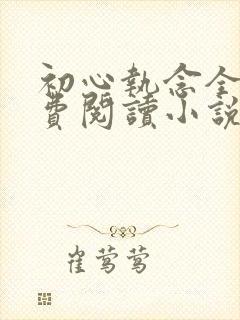 初心執念全
費閱讀小說
崔莺莺